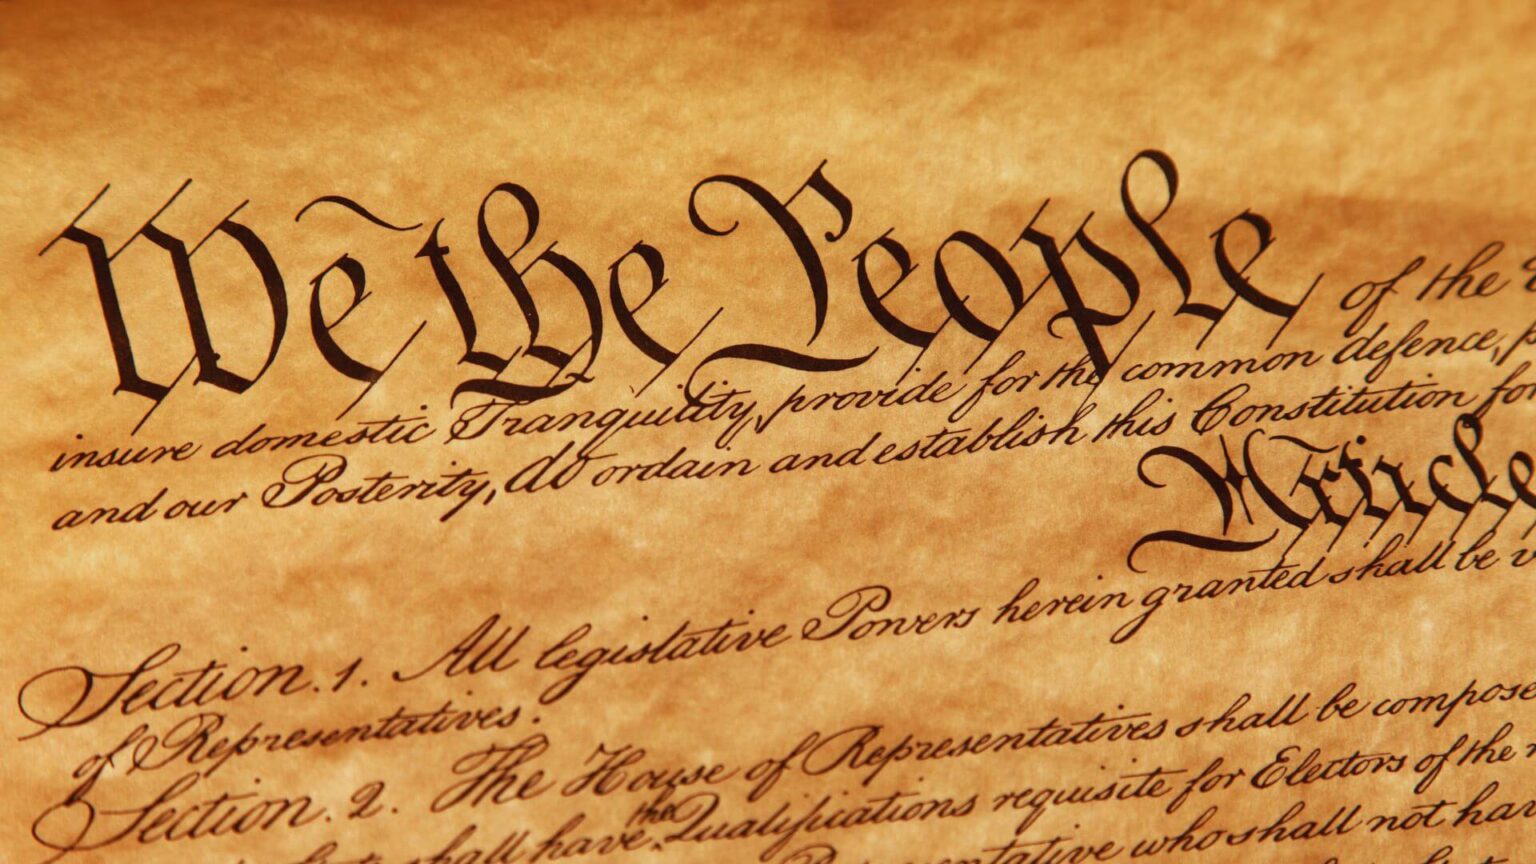 We the People of the
insure domestic Tranquility, provide for the common defence,
and our Posterity, do ordain and establish this Constitution for
Article
Section. 1. All legislative Powers herein granted shall be
of Representatives.
Section. 2. The House of Representatives shall be compose
the
shall have Qualifications requisite for Electors of the
who shall not hav